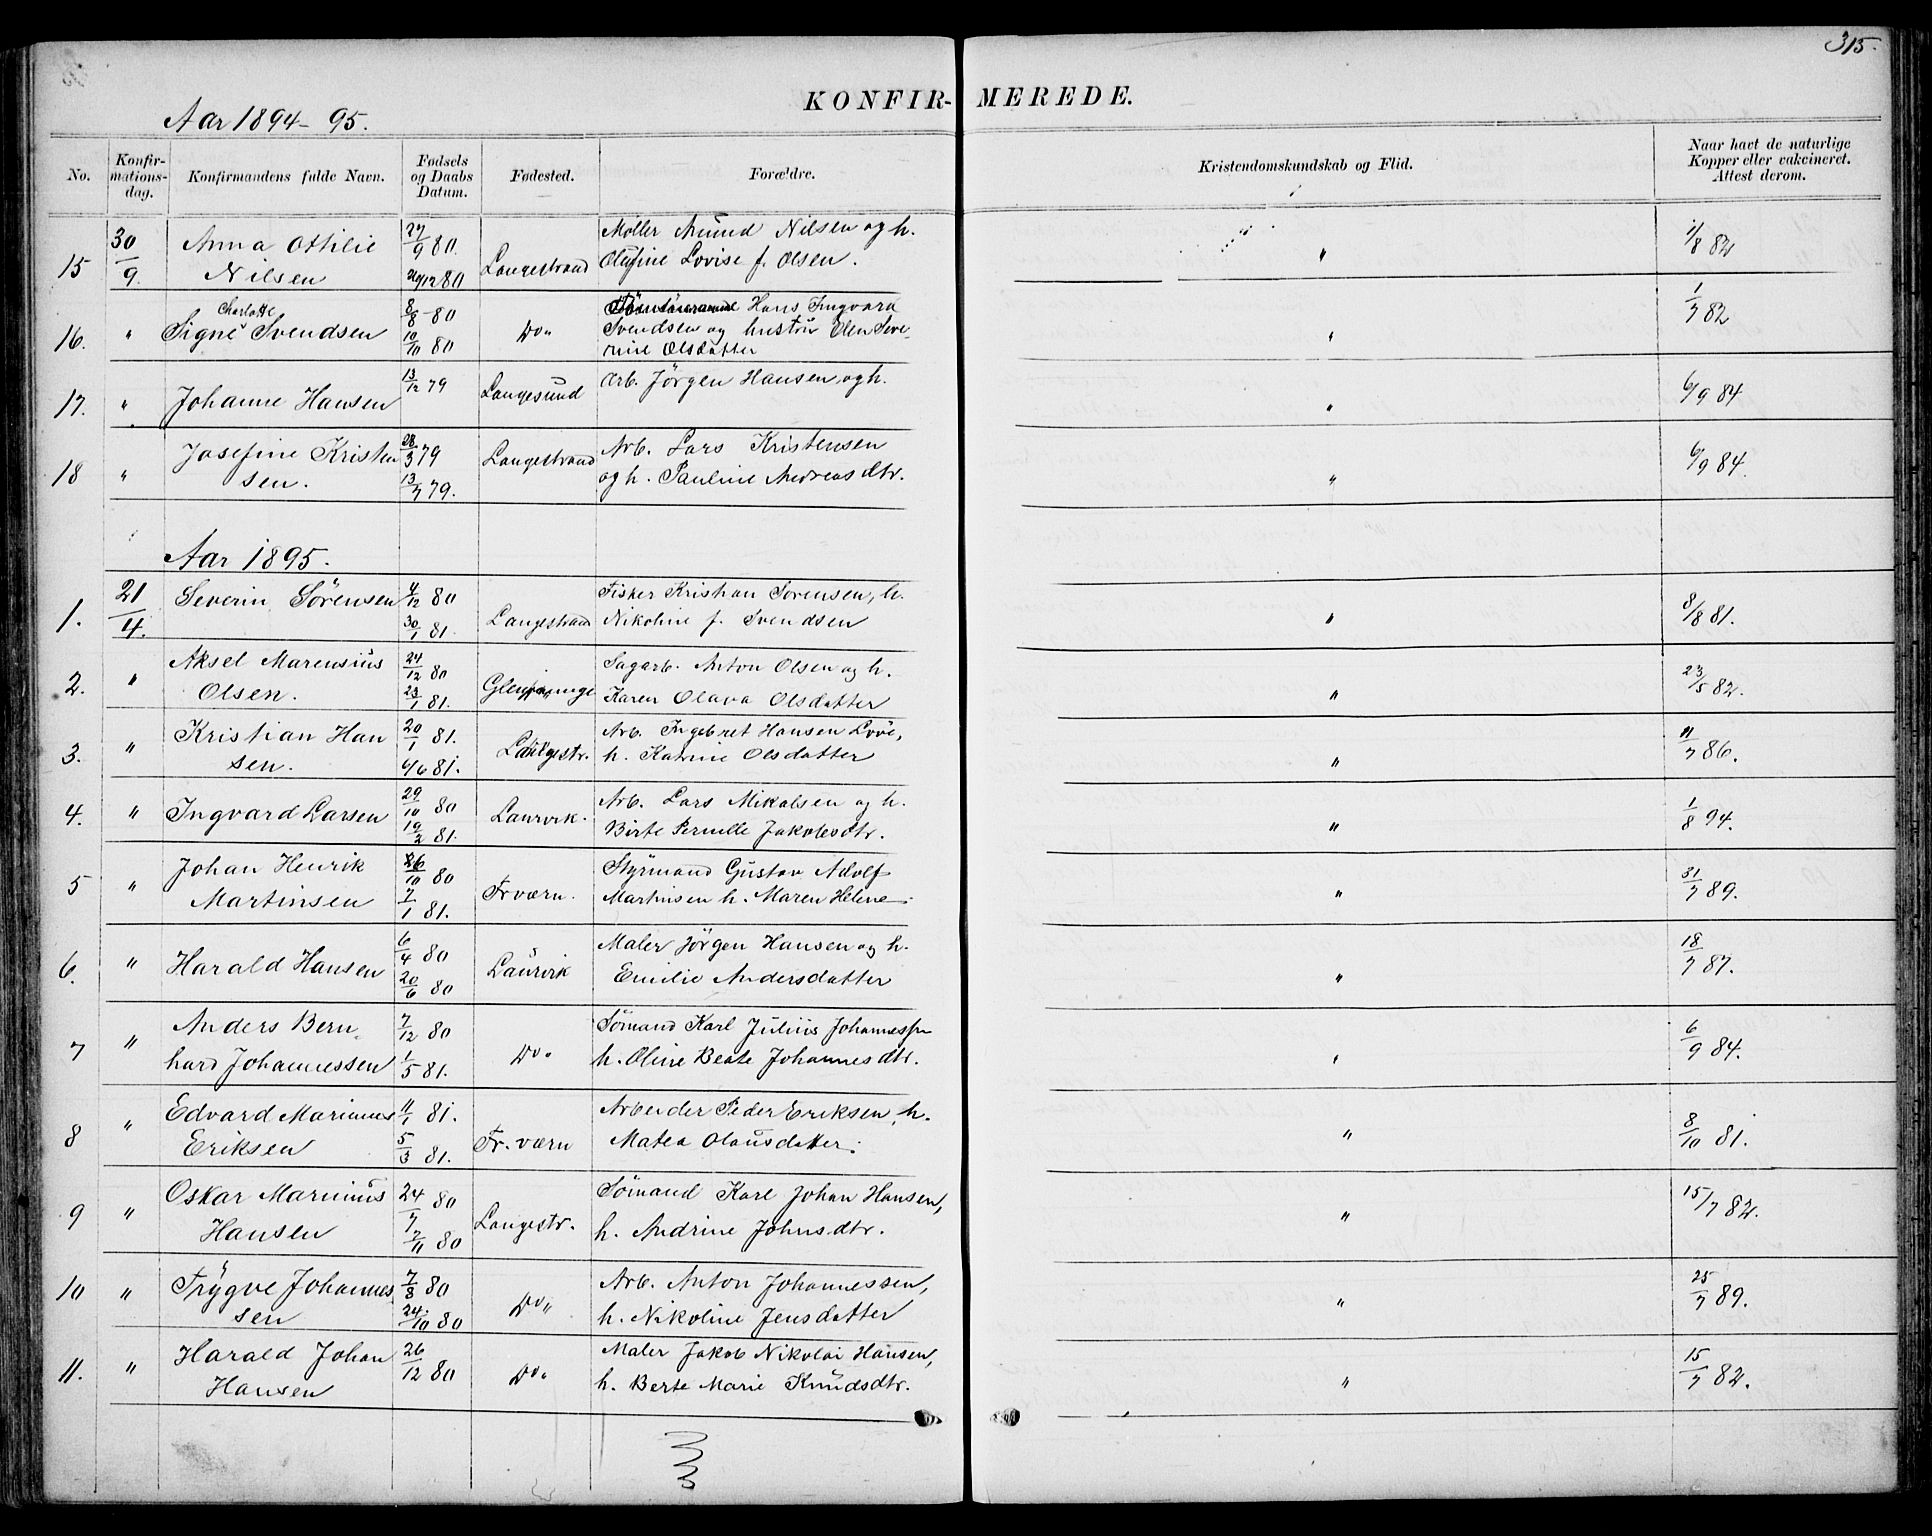 315.
KONFIR- MEREDE.
Aar 1894-95.
No. Konfir-mations-dag. Konfirmandens fulde Navn. Fødsels og Daabs Datum. Fødested. Forældre. Kristendomskundskab og Flid. Naar havt de naturlige Kopper eller vakcineret. Attest derom.
15 30/9. Anna Ottilie 27/9 80. Langestrand Møller Amund Nilsen og h. " 1/8 82
Nilsen 26/12 80 Olufine Lovise f. Olsen.
Charlotte
16. " Signe Svendsen 8/8 80 Do " Hans Ingvard " 1/7 82
10/10 80 Svendsen og hustru Elen Seve-
rine Olsdatter
17. " Johanne Hansen 13/12 79 Langesund Arb. Jörgen Hansen og h. " 6/9 84
18 " Josefine Kristen 28/3 79 Langestrand Arb. Lars Kristensen " 6/9 84.
sen. 13/7 79. og h. Pauline Andreasdtr.
Aar 1895.
1. 21/4. Severin Sörensen 4/12 80 Langestrand Fisker Kristian Sorensen, h. " 8/8 81.
30/1 81. Nikoline f. Svendsen
2. " Aksel Marensius 24/12 80 Sagarb. Anton Olsen og h. " 23/5 82.
Olsen. 23/1 81. Karen Olava Olsdatter
3. " Kristian Han 20/1 81. Langestr. Arb. Ingebret Hansen Lööe, " 11/7 86.
sen. 4/6 81. h. Katrine Olsdatter
4. " Ingvard Larsen 29/10 80 Laurvik. Arb. Lars Mikalsen og h. " 1/8 94.
19/2 81. Birte Pernille Jakobsdtr.
5 " Johan Henrik 26/10 80 Fr værn. Styrmand Gustav Adolf " 31/7 89.
Martinsen 7/1 81. Martinsen h. Maren Helene.
6. " Harald Hansen 6/4 80 Laurvik Maler Jörgen Hansen og h. " 18/7 87.
20/6 80 Emilie Andersdatter
7 " Anders Bern- 7/12 80 Do " Sömand Karl Julius Johannessen " 6/9 84.
hard Johannessen 1/5 81. h. Oline Beate Johannesdtr.
8 " Edvard Marinius 11/1 81. Fr. værn Arbeider Peder Eriksen, h. " 8/10 81.
Eriksen 5/3 81. Matea Olausdatter.
9 " Oskar Marinius 24/7 80 Langestr. Sömand Karl Johan Hansen, " 15/7 82.
Hansen 7/11 80 h. Andrine Johnsdtr.
10 " Trygve Johannes 7/8 80 Do " Arb. Anton Johannessen, " 25/7 89.
sen 24/10 80 h. Nikoline Jensdatter
11. " Harald Johan 26/12 80 Do " Maler Jakob Nikolai Hansen, " 15/7 82.
Hansen h. Berte Marie Knudsdtr.